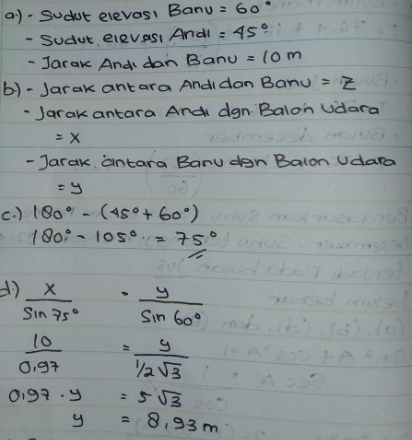 a) - Sudut elevasi Banu = 60°
- Sudut elevasi Andi = 45°
- Jarak Andi dan Banu = 10 m
b) - Jarak antara Andi dan Banu = Z
- Jarak antara Andi dgn Balon Udara
= x
- Jarak antara Banu dgn Balon Udara
= y
c.) 180° - (45° + 60°)
180° - 105° = 75°
d) x / Sin 75° = y / Sin 60°
10 / 0,97 = y / 1/2√3
0,97 . y = 5√3
y = 8,93 m